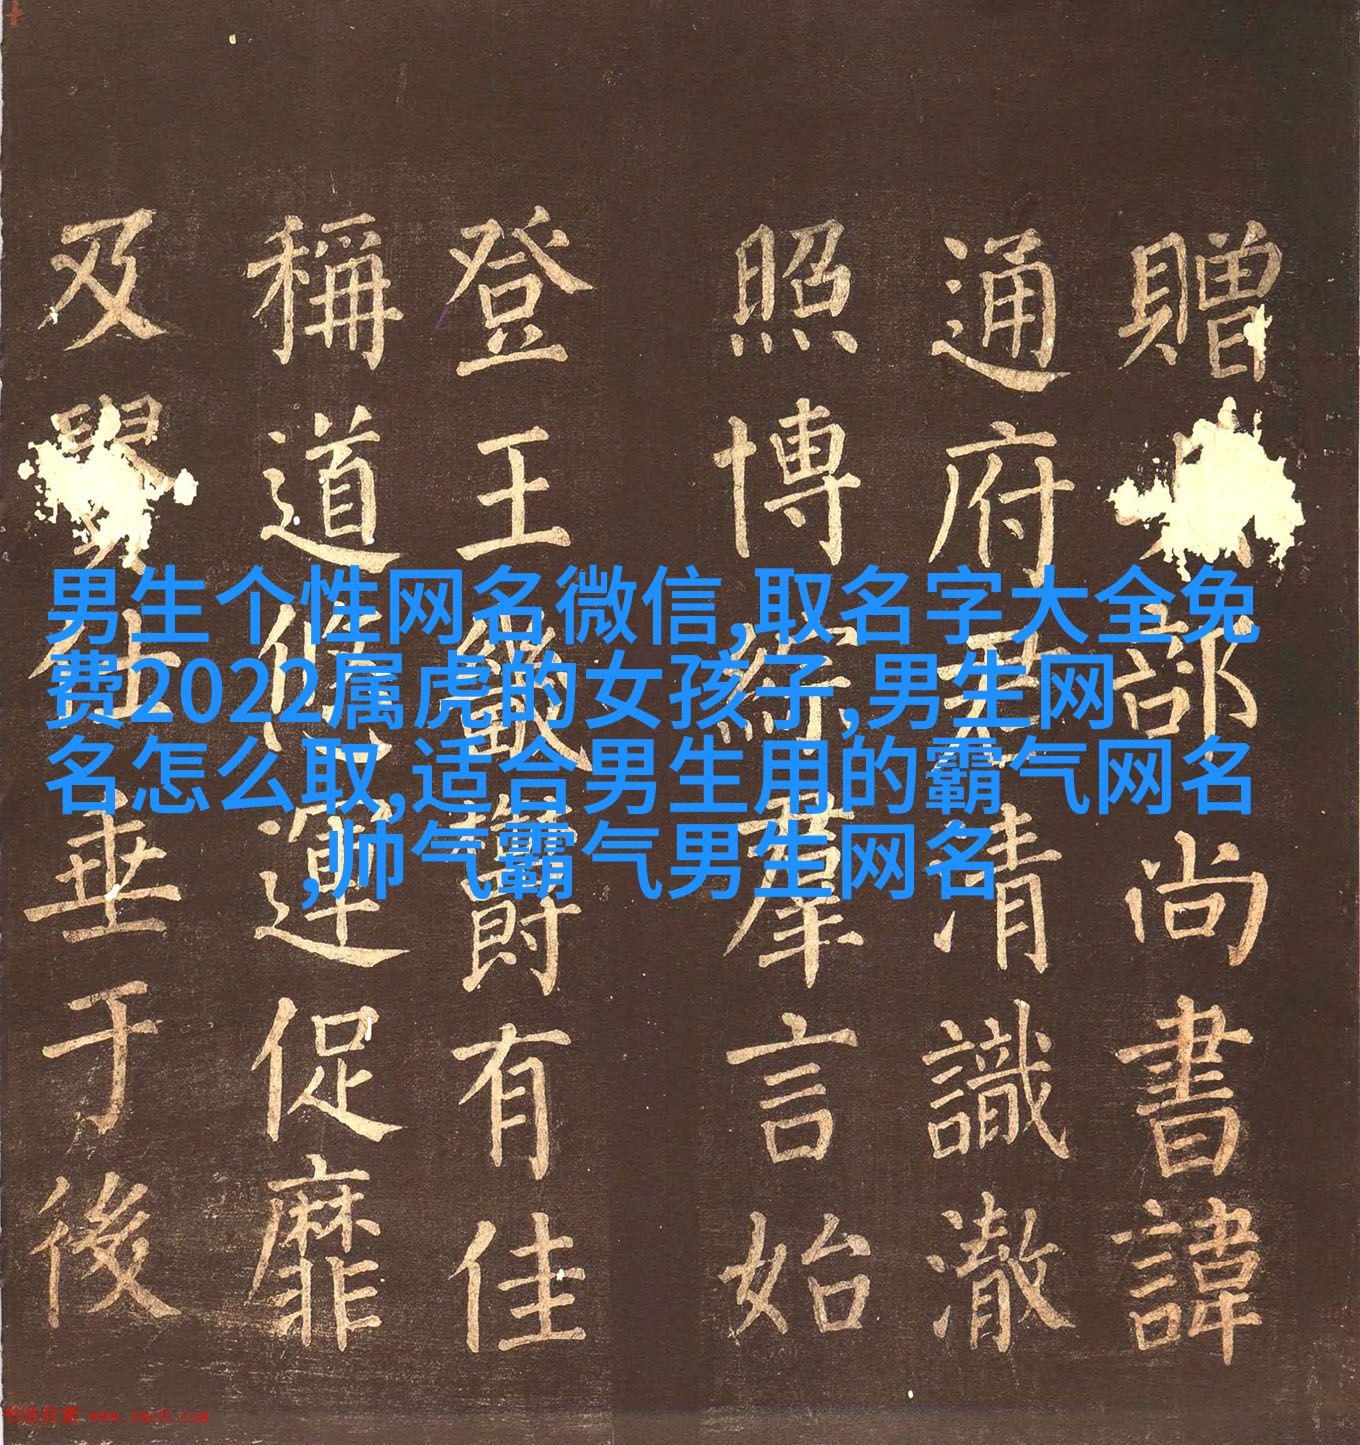 男生个性网名微信,取名字大全免
费2022属虎的女孩子,男生网
名怎么取,适合男生用的霸气网名
,帅气霸气男生网名
贈部尚書諱
通府君清識澈
照博綜羣言始
登王畿鬱有佳
稱道悠運促靡
及仕垂于後
书法欣赏 www.yac8.com